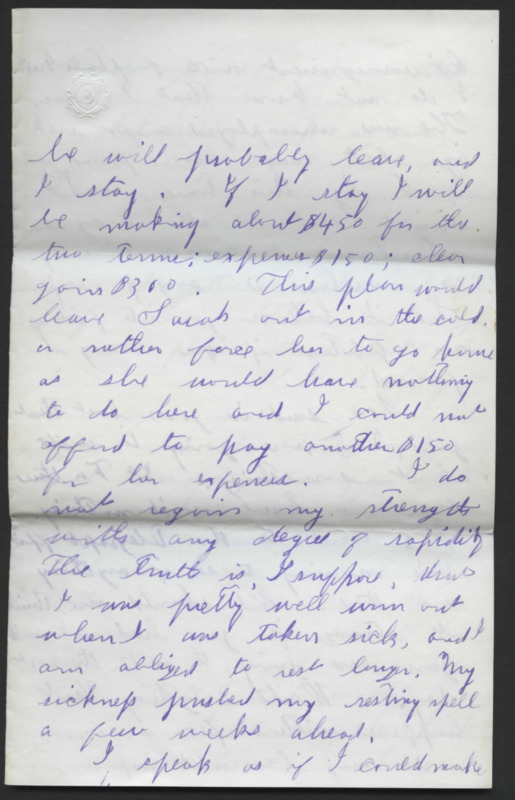 he will probably leave, and
I stay. If I stay I will
be making about $450 for the
two terms; expenses $150; clear
gains $300. This plan would
leave Sarah out in the cold,
or rather force her to go home
as she would have nothing
to do here and I could not
afford to pay another $150
for her expenses. I do
not regain my strength
with any degree of rapidity
The truth is, I suppose, that
I was pretty well worn out
when I was taken sick, and I
am obliged to rest longer. My
sickness pushed my resting spell
a few weeks ahead.
I speak as if I could make